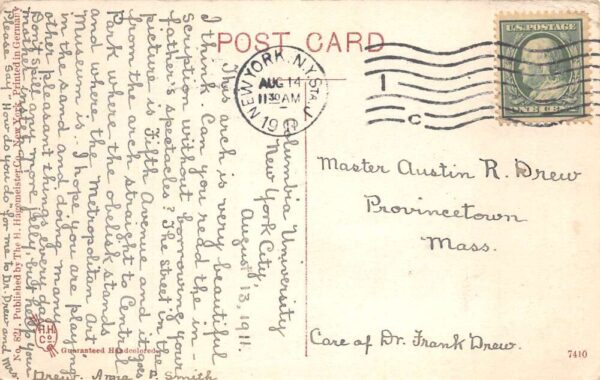 POST CARD
NEW YORK, N.Y.
STA. J
AUG 14
11 30 AM
1911
1
C
U.S. POSTAGE
Columbia University
New York City,
August 13, 1911.
This arch is very beautiful
I think. Can you read the in-
scription without borrowing your
father's spectacles? The street in the
picture is Fifth Avenue and it goes
from the arch straight to Central
Park where the obelisk stands
and where the Metropolitan Art
Museum is. I hope you are playing
in the sand and doing many
other pleasant things every day.
Don't spill any more jelly, but hold your
Please say "How do you do" for me to Dr. Drew and Mrs.
Drew. Anna E. Smith
Master Austin R. Drew
Provincetown
Mass.
Care of Dr. Frank Drew.
No. 821. Published by The H. Hagemeister Co., New York. Printed in Germany
Guaranteed Handcolored
7410